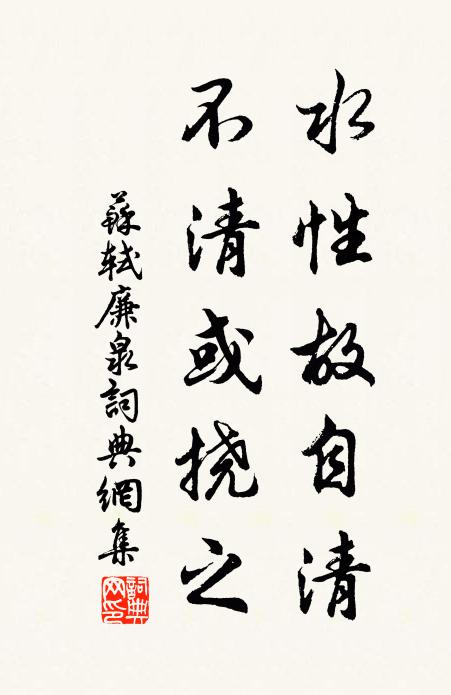 水性故自清
不清或挠之
蘇軾廉泉詞典網集
詞典網印